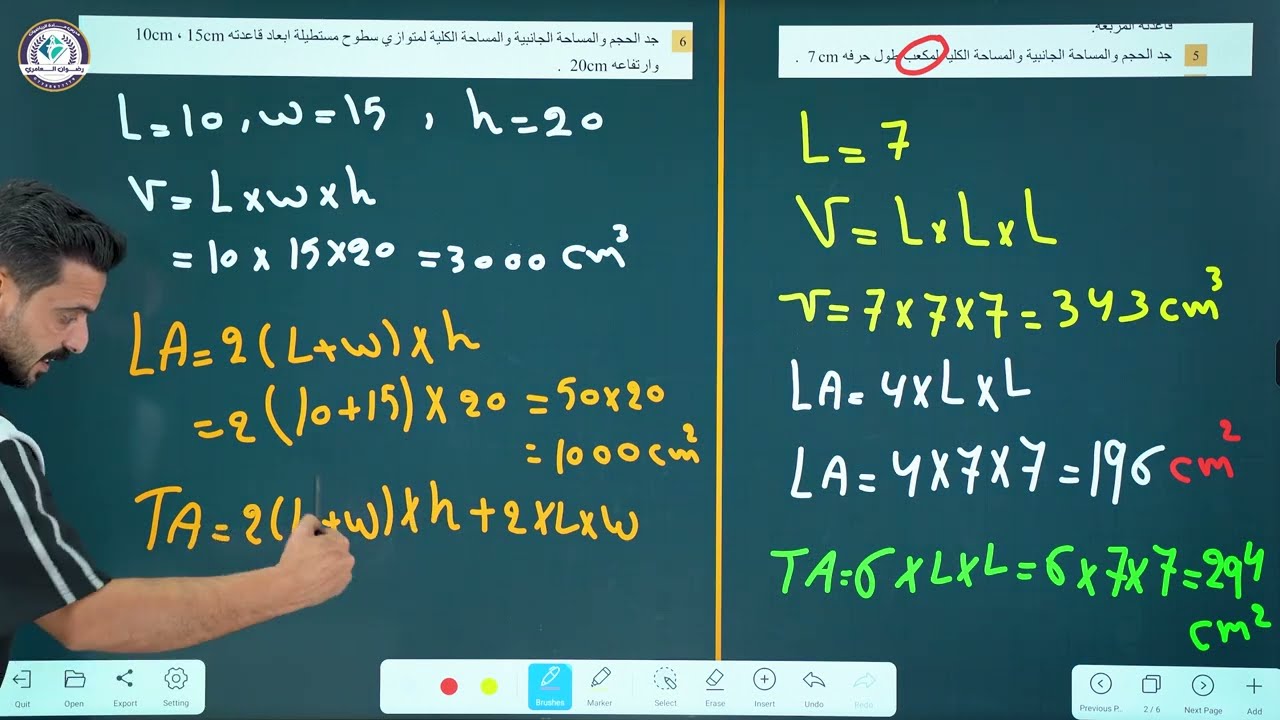 6 جد الحجم والمساحة الجانبية والمساحة الكلية لمتوازي سطوح مستطيلة ابعاد قاعدته 10cm ، 15cm
وارتفاعه 20cm .
L=10, w=15 , h=20
V= L×w×h
= 10 × 15×20 =3000 cm³
LA=2(L+w)×h
=2(10+15)×20 =50×20
=1000 cm²
TA=2(L+w)×h+2×L×w
قاعدته المربعة.
5 جد الحجم والمساحة الجانبية والمساحة الكلية لمكعب طول حرفه 7cm .
L=7
V=L×L×L
V=7×7×7=343cm³
LA=4×L×L
LA=4×7×7=196cm²
TA=6×L×L=6×7×7=294
cm²
رضوان العامري
Quit
Open
Export
Setting
Brushes
Marker
Select
Erase
Insert
Undo
Redo
Previous P..
2 / 6
Next Page
Add